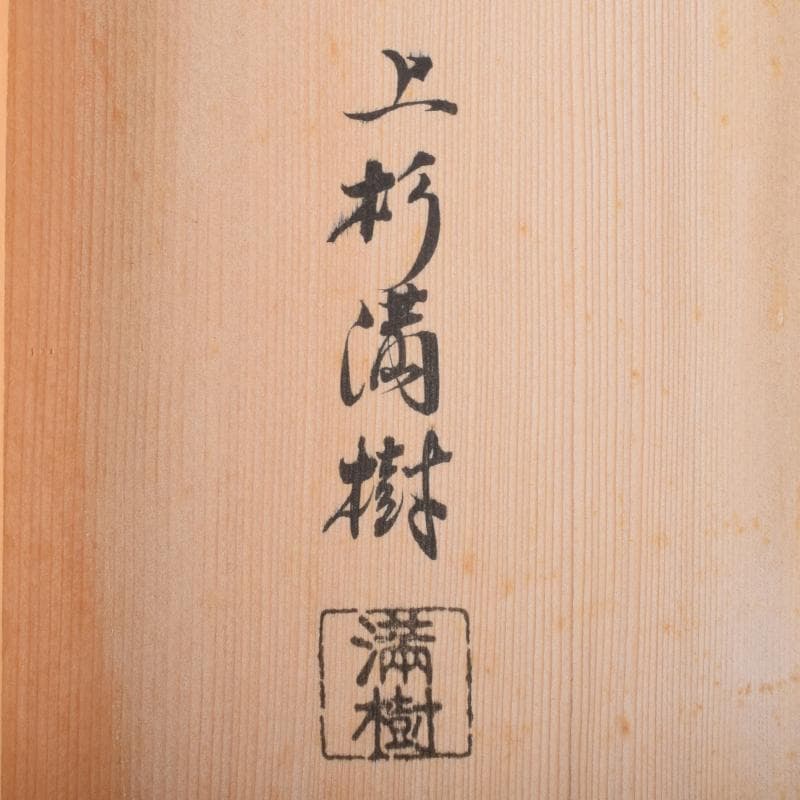 上杉満樹
満樹